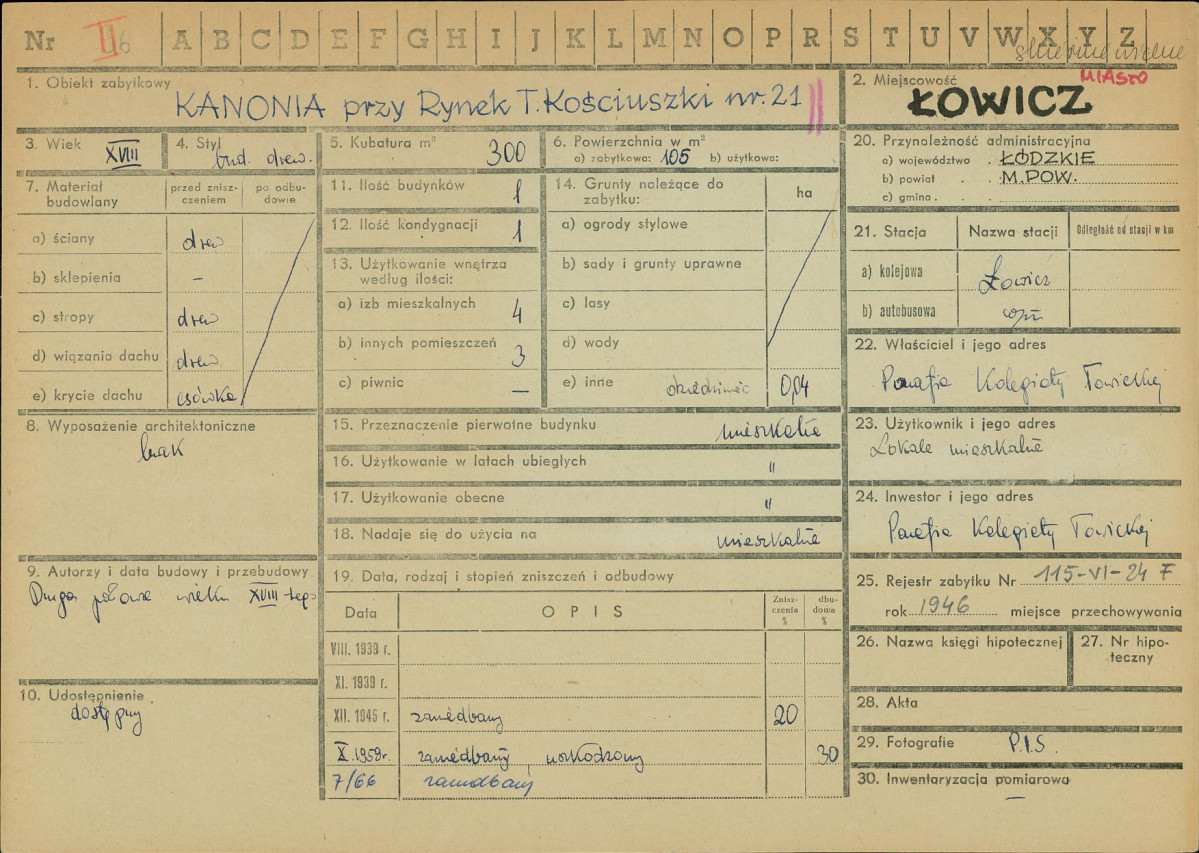 Nr II A B C D E F G H I J K L M N O P R S T U V W X Y Z
1. Obiekt zabytkowy
KANONIA przy Rynek T. Kościuszki nr. 21
2. Miejscowość MIASTO
ŁOWICZ
3. Wiek XVIII
4. Styl bud. drew.
5. Kubatura m³ 300
6. Powierzchnia w m²
a) zabytkowa: 105 b) użytkowa:
7. Materiał budowlany
przed zniszczeniem
po odbudowie
a) ściany drew
b) sklepienia –
c) stropy drew
d) wiązania dachu drew
e) krycie dachu
8. Wyposażenie architektoniczne
brak
9. Autorzy i data budowy i przebudowy
Druga połowa wieku XVIII-tego
10. Udostępnienie
dostępny
11. Ilość budynków 1
12. Ilość kondygnacji 1
13. Użytkowanie wnętrza
według ilości:
a) izb mieszkalnych 4
b) innych pomieszczeń 3
c) piwnic —
14. Grunty należące do
zabytku:
ha
a) ogrody stylowe
b) sady i grunty uprawne
c) lasy
d) wody
e) inne 0,04
15. Przeznaczenie pierwotne budynku mieszkalne
16. Użytkowanie w latach ubiegłych "
17. Użytkowanie obecne "
18. Nadaje się do użycia na mieszkalne
19. Data, rodzaj i stopień zniszczeń i odbudowy
Data OPIS Zniszczenia % dbudowa %
VIII. 1939 r.
XI. 1939 r.
XII. 1945 r. zaniedbany 20
X. 1959 r. zaniedbany, uszkodzony 30
7/66 zaniedbany
20. Przynależność administracyjna
a) województwo . ŁÓDZKIE
b) powiat . . M. POW.
c) gmina . .
21. Stacja Nazwa stacji Odległość od stacji w km
a) kolejowa Łowicz
b) autobusowa
22. Właściciel i jego adres
Parafia Kolegiaty Łowickiej
23. Użytkownik i jego adres
Lokale mieszkalne
24. Inwestor i jego adres
Parafia Kolegiaty Łowickiej
25. Rejestr zabytku Nr 115-VI-24 F
rok 1946 miejsce przechowywania
26. Nazwa księgi hipotecznej
27. Nr hipoteczny
28. Akta
29. Fotografie P.I.S.
30. Inwentaryzacja pomiarowa
—